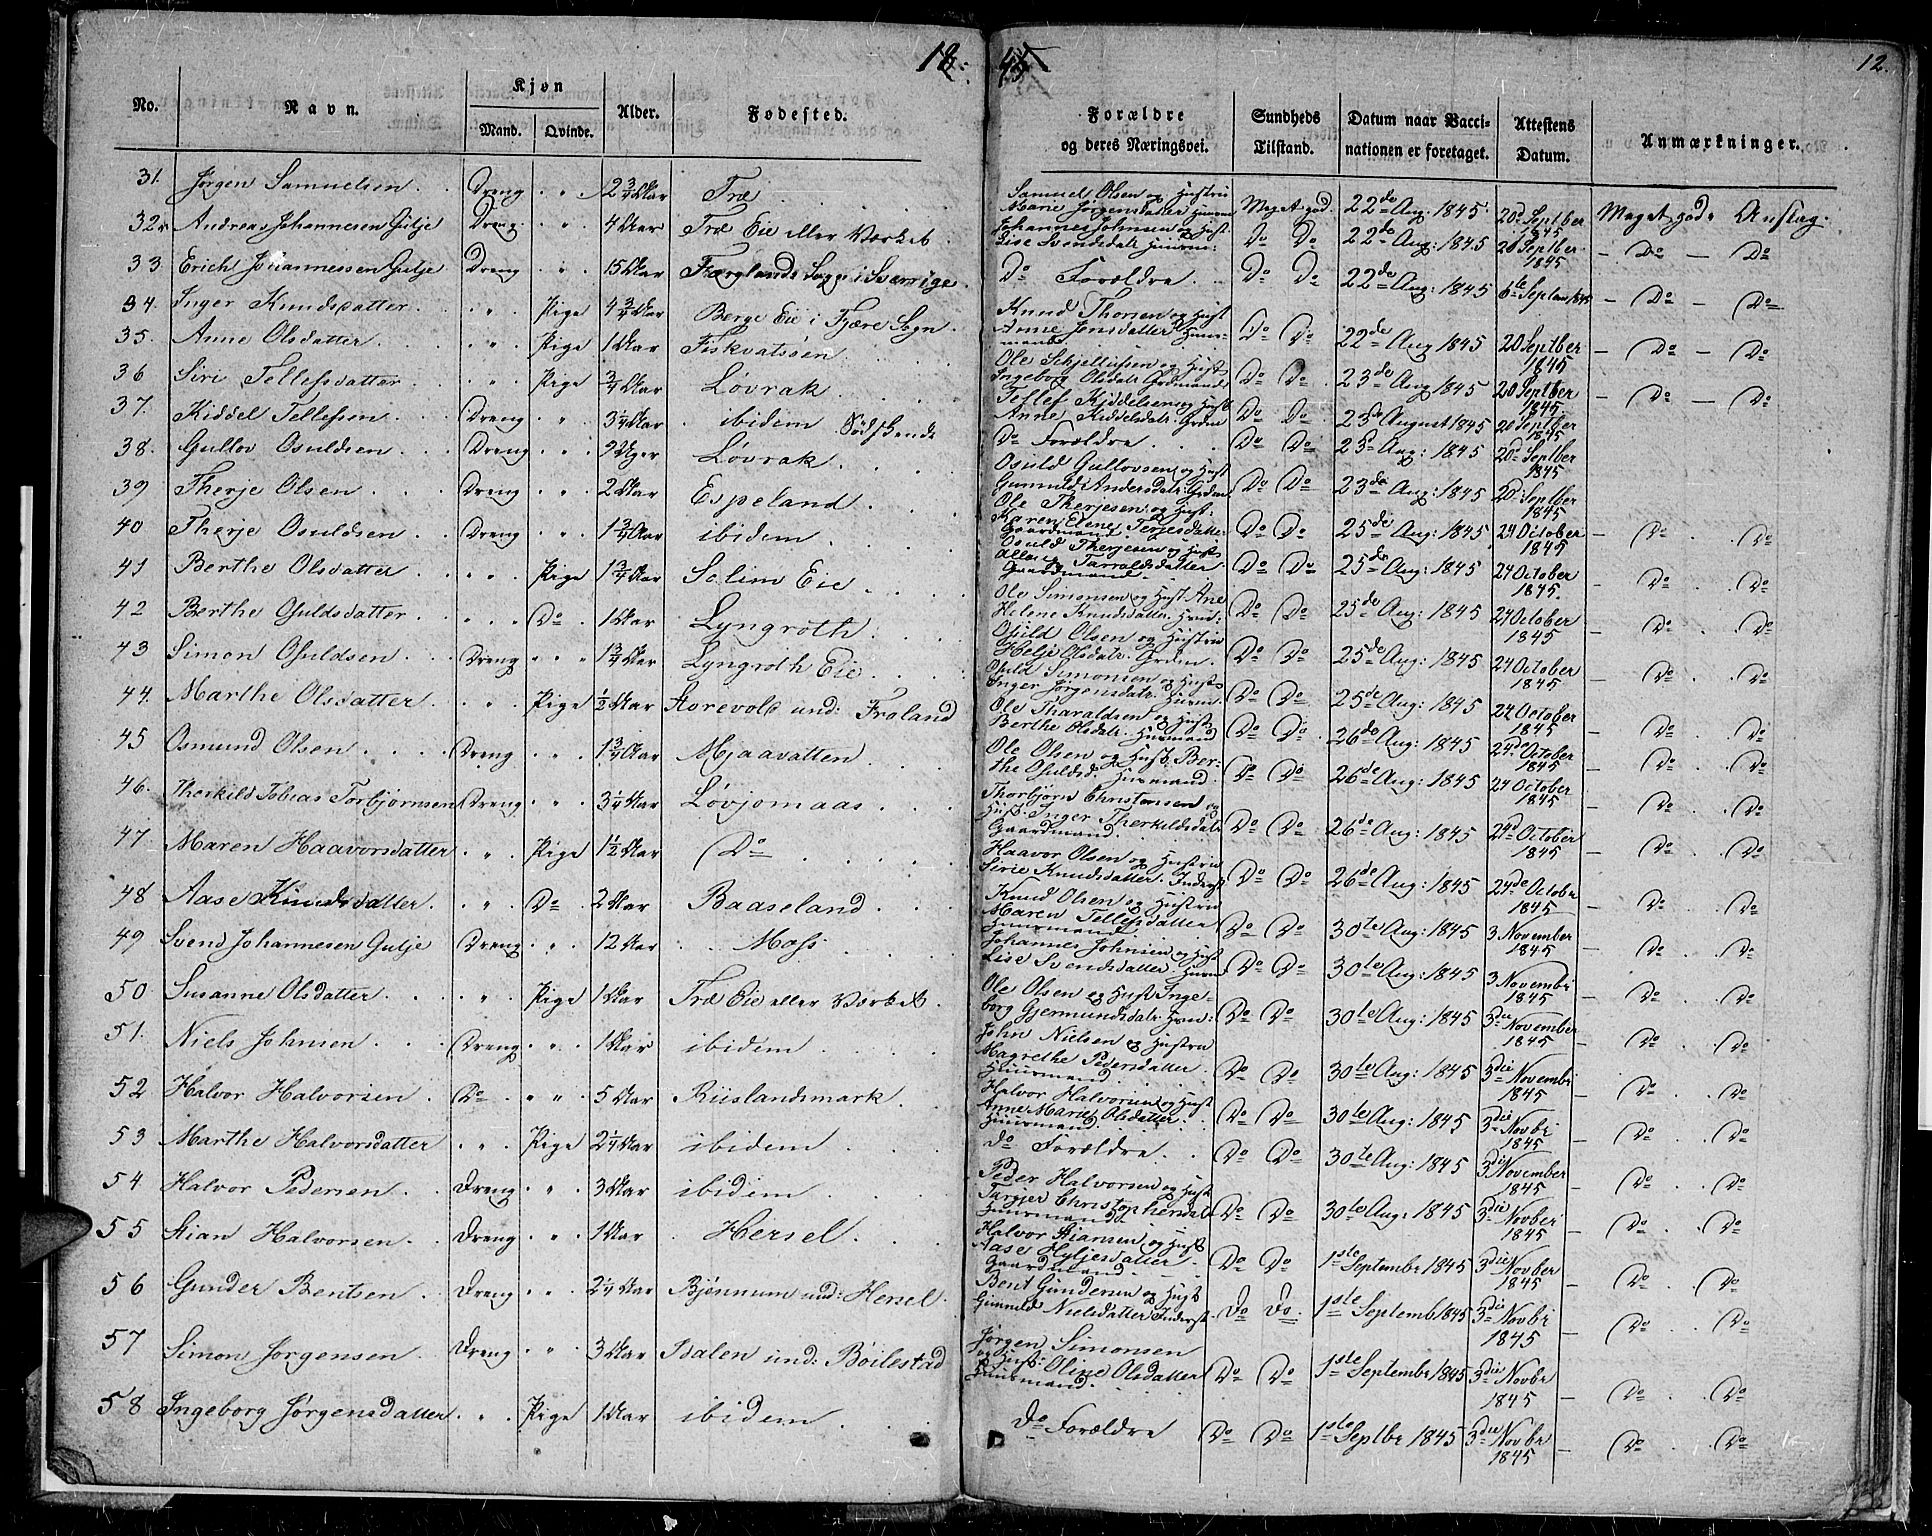 1845
12.
No. Navn. Kjøn Mand. Qvinde. Alder. Fødested.
Forældre og deres Næringsvei. Sundheds Tilstand. Datum naar Vaccinationen er foretaget. Attestens Datum. Anmærkninger.
31. Jørgen Samuelsen Dreng 2 3/4 Aar Træ
32. Andreas Johannesen Gulje Dreng 4 Aar Træ Eie eller Værket
33 Erich Johannessen Gulje Dreng 15 Aar Sogn i Sverrige
34. Inger Knudsdatter Pige 4 3/4 Aar Berge Eie i Fjære Sogn
35. Anne Olsdatter Pige 1 Aar Fiskvatsøen
36 Siri Tellefsdatter Pige 3/4 Aar Løvrak
37. Kiddel Tellefsen Dreng 3 1/4 Aar ibidem Sødskende
38. Gullov Osuldsen Dreng 9 Uger Løvrak
39 Therje Olsen Dreng 2 Aar Espeland
40 Therje Osuldsen Dreng 1 3/4 Aar ibidem
41 Berthe Olsdatter Pige 1 3/4 Aar Solim Eie
42 Berthe Osuldsdatter Do 1 Aar Lyngroth
43 Simon Osuldsen Dreng 1 3/4 Aar Lyngroth Eie
44. Marthe Olsdatter Pige 1/2 Aar Aarevold und: Froland
45 Osmund Olsen Dreng 1 3/4 Aar Mjaavatten
46. Therkild Tobias Torbjørnsen Dreng 3 1/4 Aar Løvjomaas
47 Maren Haavorsdatter Pige 1 1/2 Aar Do
48 Aase Knudsdatter Do 2 Aar Baaseland
49 Svend Johannesen Gulje Dreng 12 Aar Moss
50 Susanne Olsdatter Pige 1 Aar Træ Eie eller Værket
51. Niels Johnsen Dreng 1 Aar ibidem
52 Halvor Halvorsen Do 5 Aar Riislandsmark
53 Marthe Halvorsdatter Pige 2 1/4 Aar ibidem
54 Halvor Pedersen Dreng 3 Aar ibidem
55 Stian Halvorsen Dreng 1 Aar Hersel
56 Gunder Bentsen Dreng 2 1/4 Aar Bjønmum und: Hersel
57 Simon Jørgensen Dreng 3 Aar Dalen und: Bøilestad
58 Ingeborg Jørgensdatter Pige 1 Aar ibidem
Samuel Olsen og Hustru
Marie Jørgensdatter Meget god. 22de Aug. 1845 20d Septber 1845 Meget gode Anslag.
Johannes Johnsen og Hust.
Lise Svendsdatr. Do Do 22de Aug: 1845 20 Septber 1845 – Do – Do
Do Forældre Do Do 22de Aug: 1845 6te Septem 1845 – Do – Do
Knud Thorsen og Hust
Anne Jensdatter Huusmand Do Do 22de Aug 1845 20 Septber 1845 – Do – Do
Ole Schjellufsen og Hust
Ingeborg Olsdatr. Grdmand Do Do 23de Aug 1845 20 Septber 1845 – Do – Do
Tellef Kiddelsen og Hust
Anne Kiddelsdatr. Grdm Do Do 23de August 1845 20 Septber 1845
Do Forældre Do Do 23d Aug: 1845 20de Septber 1845
Osuld Gullovsen og Hust
Gunnild Andersdatr. Grdm Do Do 23de Aug: 1845 20de Septber 1845
Ole Therjesen og Hust:
Karen Elene Terjesdatter Gaardmand Do Do 25de Aug: 1845 24 October 1845 – Do Do
Osuld Therjesen og Hust
Tarraldsdatter Gaardmand Do Do 25de Aug: 1845 24 October 1845 – Do Do
Ole Simonsen og Hust Ane
Helene Knudsdatter Do Do 25de Aug: 1845 24 October 1845 – Do Do
Osuld Olsen og Hustru
Helje Olsdatr. Grdm. Do Do 25de Aug: 1845 24 October 1845 – Do Do
Osuld Simonsen og Hust
Inger Jørgensdatr. Do Do 25de Aug: 1845 24 October 1845 – Do Do
Ole Tharaldsen og Hust
Berthe Olsdatr. Husmand Do Do 26de Aug: 1845 24de October 1845 – Do Do
Ole Olsen og Hust. Ber-
the Osuldsd. Husmand Do Do 26de Aug: 1845 24 October 1845 – Do Do
Thorbjørn Christensen og
Hust. Inger Therkildsdatr.
Gaardmand. Do Do 26de Aug: 1845 24d October 1845 – Do Do
Haavor Olsen og Hustru
Sirie Knudsdatter. Inderst Do Do 26de Aug: 1845 24de October 1845 – Do Do
Knud Olsen og Hustru
Maren Tellefsdatter
Huusmand Do Do 30te Aug: 1845 3 November 1845 – Do Do
Johannes Johnsen og Hust
Lise Svendsdatter Do Do 30te Aug: 1845 3 November 1845 – Do Do
Ole Olsen og Hust Inge-
borg Gjermundsdatr. Do Do 30te Aug: 1845 3die November 1845 – Do Do
John Nielsen og Hustru
Magrethe Pedersdatter
Huusmand Do Do 30te Aug: 1845 3die Novembr 1845 – Do Do
Halvor Halvorsen og Hust
Anne Marie Olsdatter
Huusmand Do Do 30te Aug: 1845 3die Novbr 1845 – Do Do
Do Forældre Do Do 30te Aug: 1845 3die November 1845 – Do Do
Peder Halvorsen og Hust
Targier Christophersdatr
Huusmand Do Do 30te Aug: 1845 3die Novber 1845 – Do Do
Halvor Stiansen og Hust
Aase Hyljesdatter
Gaardmand Do Do 1ste Septembr 1845 3die Novber 1845 – Do Do
Bent Gundersen og Hust
Gunnild Nielsdatter Inderst Do Do 1ste Septemb 1845 3die Novbr 1845 – Do Do
Jørgen Simonsen
og Hust: Oline Olsdatter
Huusmand. Do Do 1ste Septembr 1845 3die Novbr 1845 – Do Do
Do Forældre Do Do 1ste Septbr 1845 3die Novbr 1845 – Do Do